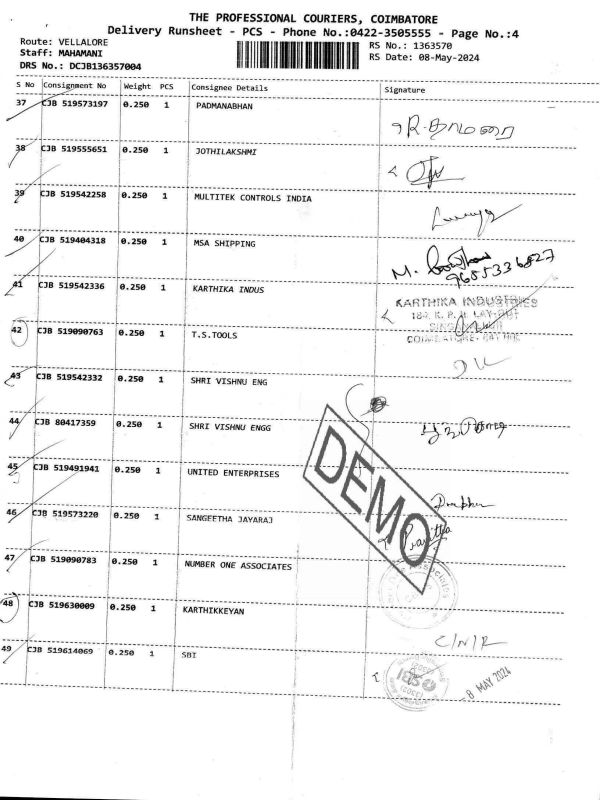 THE PROFESSIONAL COURIERS, COIMBATORE
Delivery Runsheet - PCS - Phone No.:0422-3505555 - Page No.:4
Route: VELLALORE
RS No.: 1363570
Staff: MAHAMANI
RS Date: 08-May-2024
DRS No.: DCJB136357004
S No Consignment No Weight PCS Consignee Details Signature
37 CJB 519573197 0.250 1 PADMANABHAN
38 CJB 519555651 0.250 1 JOTHILAKSHMI
39 CJB 519542258 0.250 1 MULTITEK CONTROLS INDIA
40 CJB 519404318 0.250 1 MSA SHIPPING
M.
9655336827
41 CJB 519542336 0.250 1 KARTHIKA INDUS
KARTHIKA INDUSTRIES
42 CJB 519090763 0.250 1 T.S.TOOLS
43 CJB 519542332 0.250 1 SHRI VISHNU ENG
44 CJB 80417359 0.250 1 SHRI VISHNU ENGG
45 CJB 519491941 0.250 1 UNITED ENTERPRISES
DEMO
46 CJB 519573220 0.250 1 SANGEETHA JAYARAJ
47 CJB 519090783 0.250 1 NUMBER ONE ASSOCIATES
48 CJB 519630009 0.250 1 KARTHIKKEYAN
C/N/R
49 CJB 519614069 0.250 1 SBI
SBI
8 MAY 2024